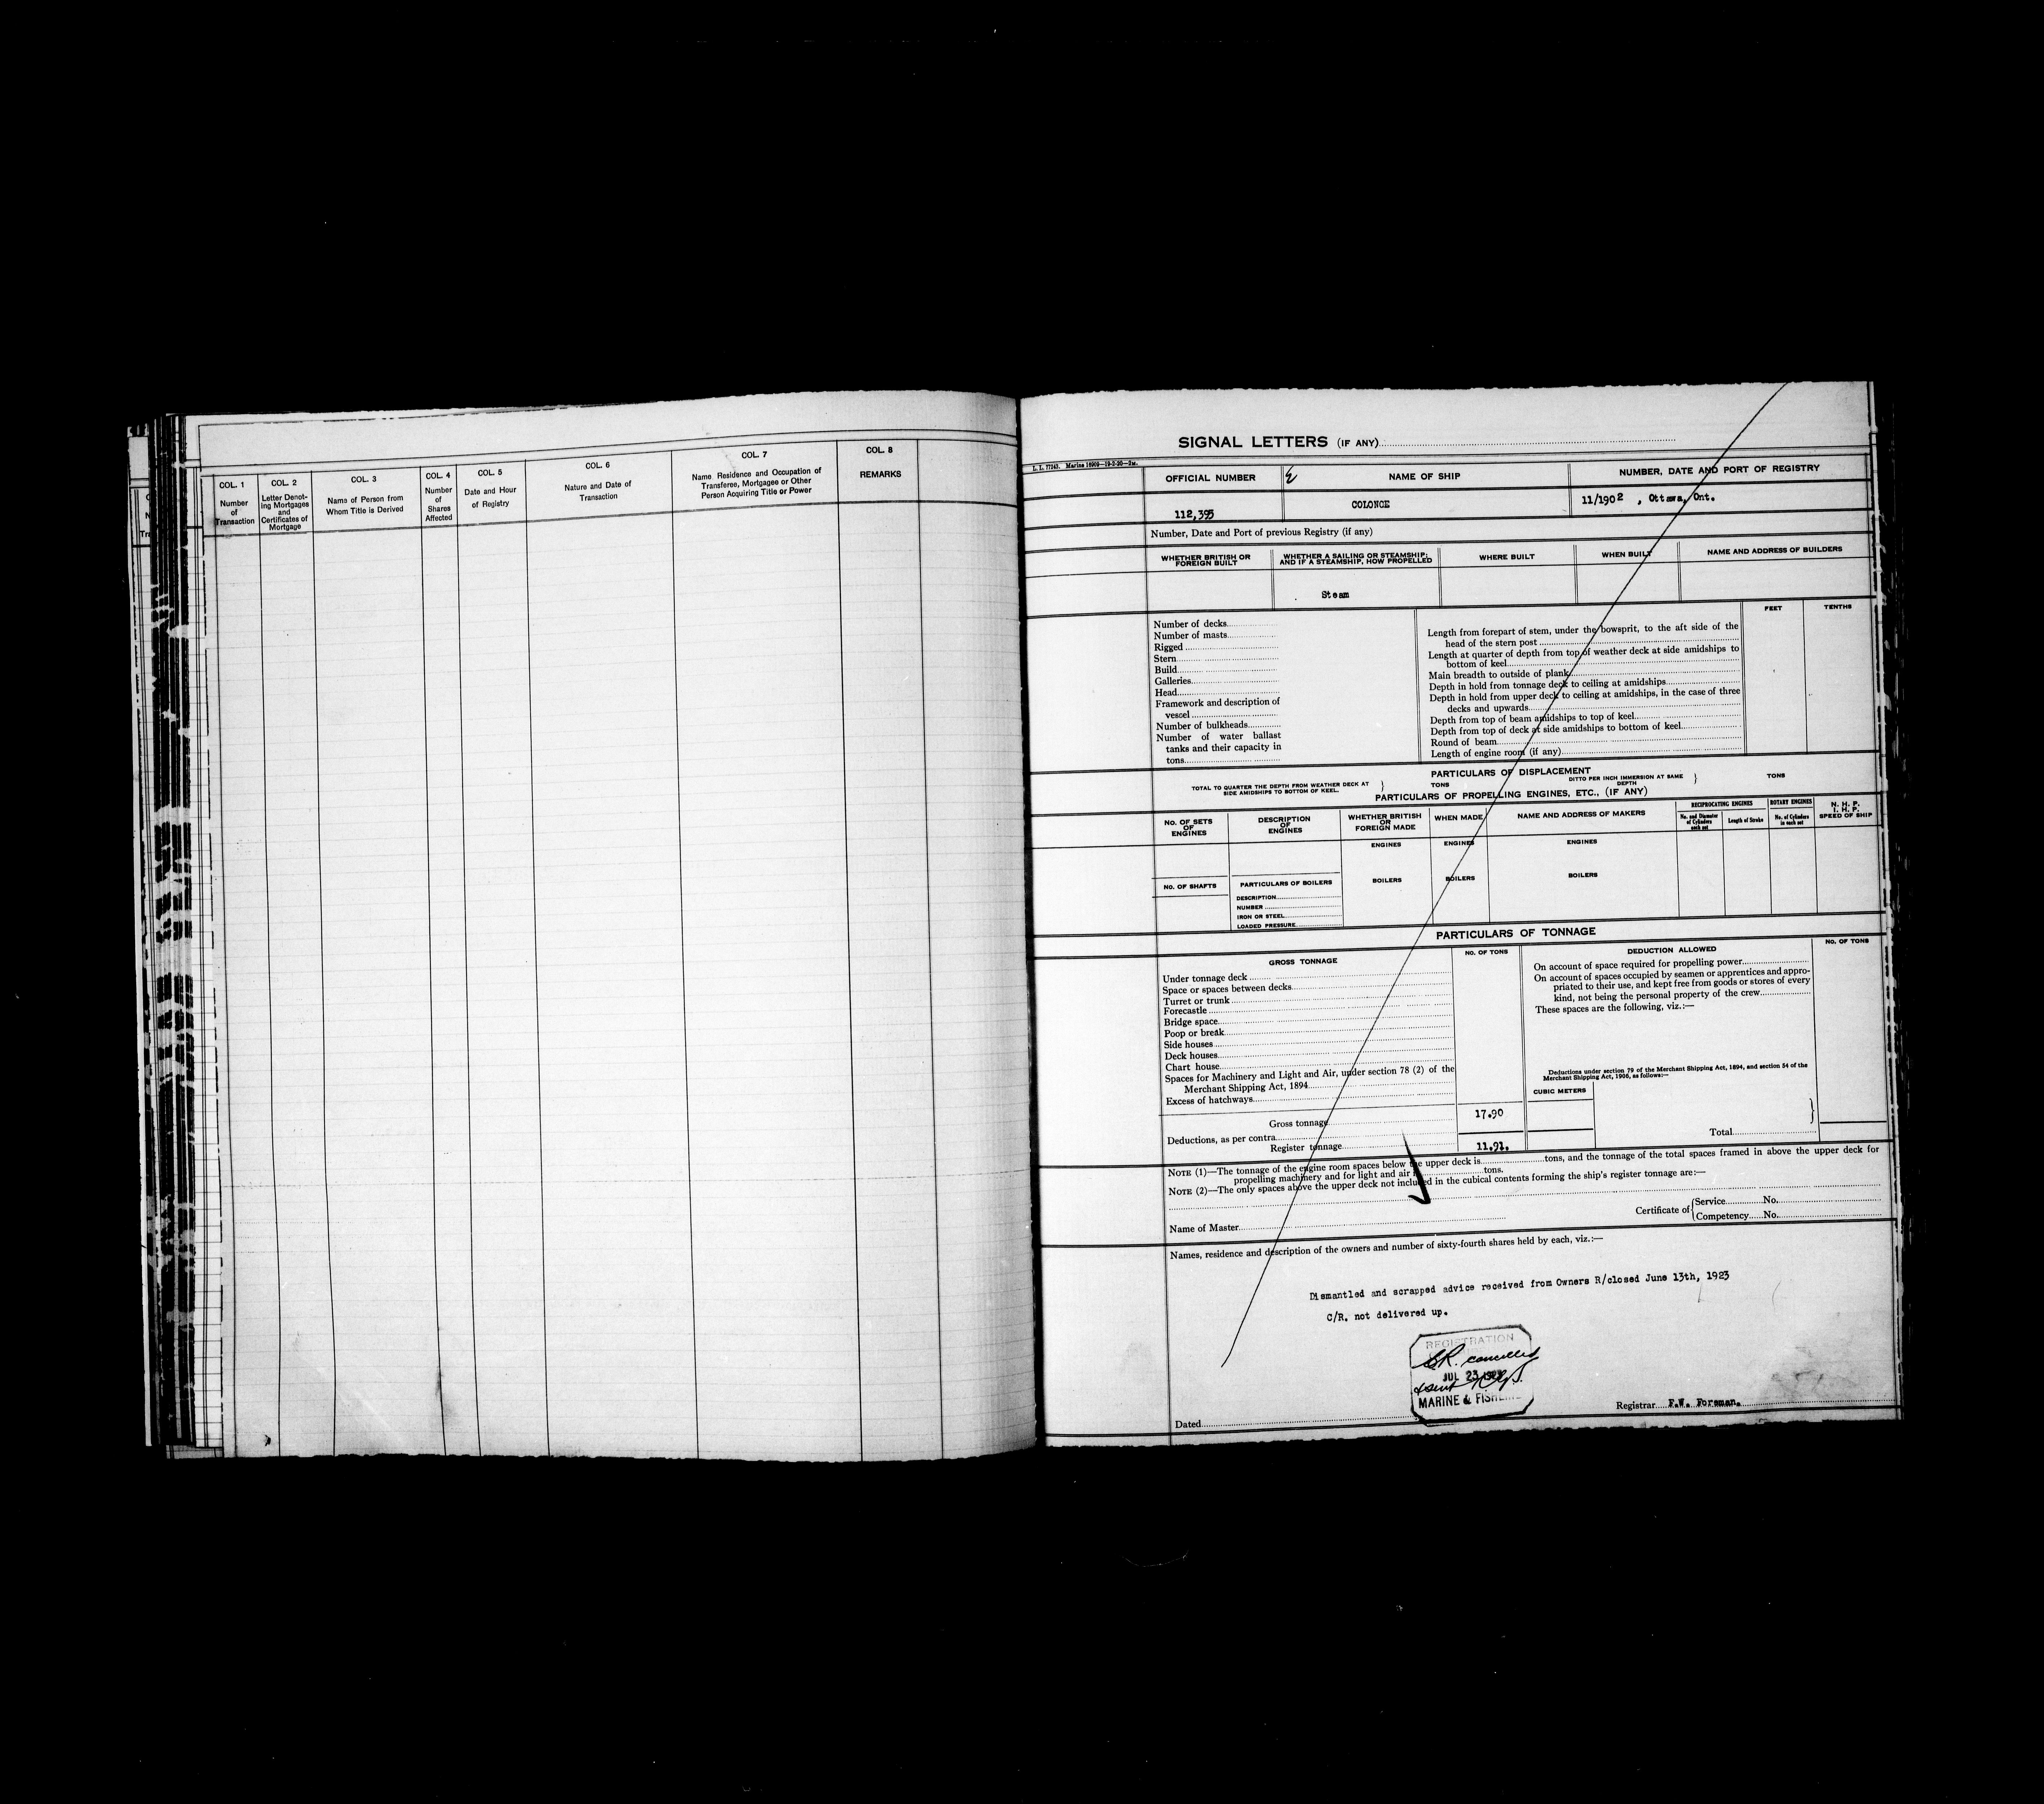 COL. 1
Number
of
Transaction
COL. 2
Letter Denot-
ing Mortgages
and
Certificates of
Mortgage
COL. 3
Name of Person from
Whom Title is Derived
COL. 4
Number
of
Shares
Affected
COL. 5
Date and Hour
of Registry
COL. 6
Nature and Date of
Transaction
COL. 7
Name Residence and Occupation of
Transferee, Mortgagee or Other
Person Acquiring Title or Power
COL. 8
REMARKS
SIGNAL LETTERS (IF ANY)
OFFICIAL NUMBER
NAME OF SHIP
NUMBER, DATE AND PORT OF REGISTRY
112,395
COLONCE
11/1902 , Ottawa, Ont.
Number, Date and Port of previous Registry (if any)
WHETHER BRITISH OR
FOREIGN BUILT
WHETHER A SAILING OR STEAMSHIP;
AND IF A STEAMSHIP, HOW PROPELLED
WHERE BUILT
WHEN BUILT
NAME AND ADDRESS OF BUILDERS
Steam
Number of decks
Number of masts
Rigged
Stern
Build
Galleries
Head
Framework and description of
vessel
Number of bulkheads
Number of water ballast
tanks and their capacity in
tons
FEET
TENTHS
Length from forepart of stem, under the bowsprit, to the aft side of the
head of the stern post
Length at quarter of depth from top of weather deck at side amidships to
bottom of keel
Main breadth to outside of plank
Depth in hold from tonnage deck to ceiling at amidships
Depth in hold from upper deck to ceiling at amidships, in the case of three
decks and upwards
Depth from top of beam amidships to top of keel
Depth from top of deck at side amidships to bottom of keel
Round of beam
Length of engine room (if any)
PARTICULARS OF DISPLACEMENT
TOTAL TO QUARTER THE DEPTH FROM WEATHER DECK AT
SIDE AMIDSHIPS TO BOTTOM OF KEEL.
TONS
DITTO PER INCH IMMERSION AT SAME
DEPTH
TONS
PARTICULARS OF PROPELLING ENGINES, ETC., (IF ANY)
NO. OF SETS
OF
ENGINES
DESCRIPTION
OF
ENGINES
WHETHER BRITISH
OR
FOREIGN MADE
WHEN MADE
NAME AND ADDRESS OF MAKERS
RECIPROCATING ENGINES
No. and Diameter
of Cylinders
each set
Length of Stroke
ROTARY ENGINES
No. of Cylinders
in each set
N. H. P.
I. H. P.
SPEED OF SHIP
ENGINES
ENGINES
ENGINES
NO. OF SHAFTS
PARTICULARS OF BOILERS
BOILERS
BOILERS
BOILERS
DESCRIPTION
NUMBER
IRON OR STEEL
LOADED PRESSURE
PARTICULARS OF TONNAGE
GROSS TONNAGE
NO. OF TONS
DEDUCTION ALLOWED
NO. OF TONS
Under tonnage deck
Space or spaces between decks
Turret or trunk
Forecastle
Bridge space
Poop or break
Side houses
Deck houses
Chart house
Spaces for Machinery and Light and Air, under section 78 (2) of the
Merchant Shipping Act, 1894
Excess of hatchways
Gross tonnage
17.90
Deductions, as per contra
Register tonnage
11.91.
On account of space required for propelling power
On account of spaces occupied by seamen or apprentices and appro-
priated to their use, and kept free from goods or stores of every
kind, not being the personal property of the crew
These spaces are the following, viz.:—
Deductions under section 79 of the Merchant Shipping Act, 1894, and section 54 of the
Merchant Shipping Act, 1906, as follows:—
CUBIC METERS
Total
NOTE (1)—The tonnage of the engine room spaces below the upper deck is tons, and the tonnage of the total spaces framed in above the upper deck for
propelling machinery and for light and air is tons.
NOTE (2)—The only spaces above the upper deck not included in the cubical contents forming the ship's register tonnage are:—
Name of Master
Certificate of
Service No.
Competency No.
Names, residence and description of the owners and number of sixty-fourth shares held by each, viz.:—
Dismantled and scrapped advice received from Owners R/closed June 13th, 1923
C/R. not delivered up.
REGISTRATION
C.R. cancelled
JUL 23 1923
MARINE & FISHERIE
Dated
Registrar F.W. Foreman.